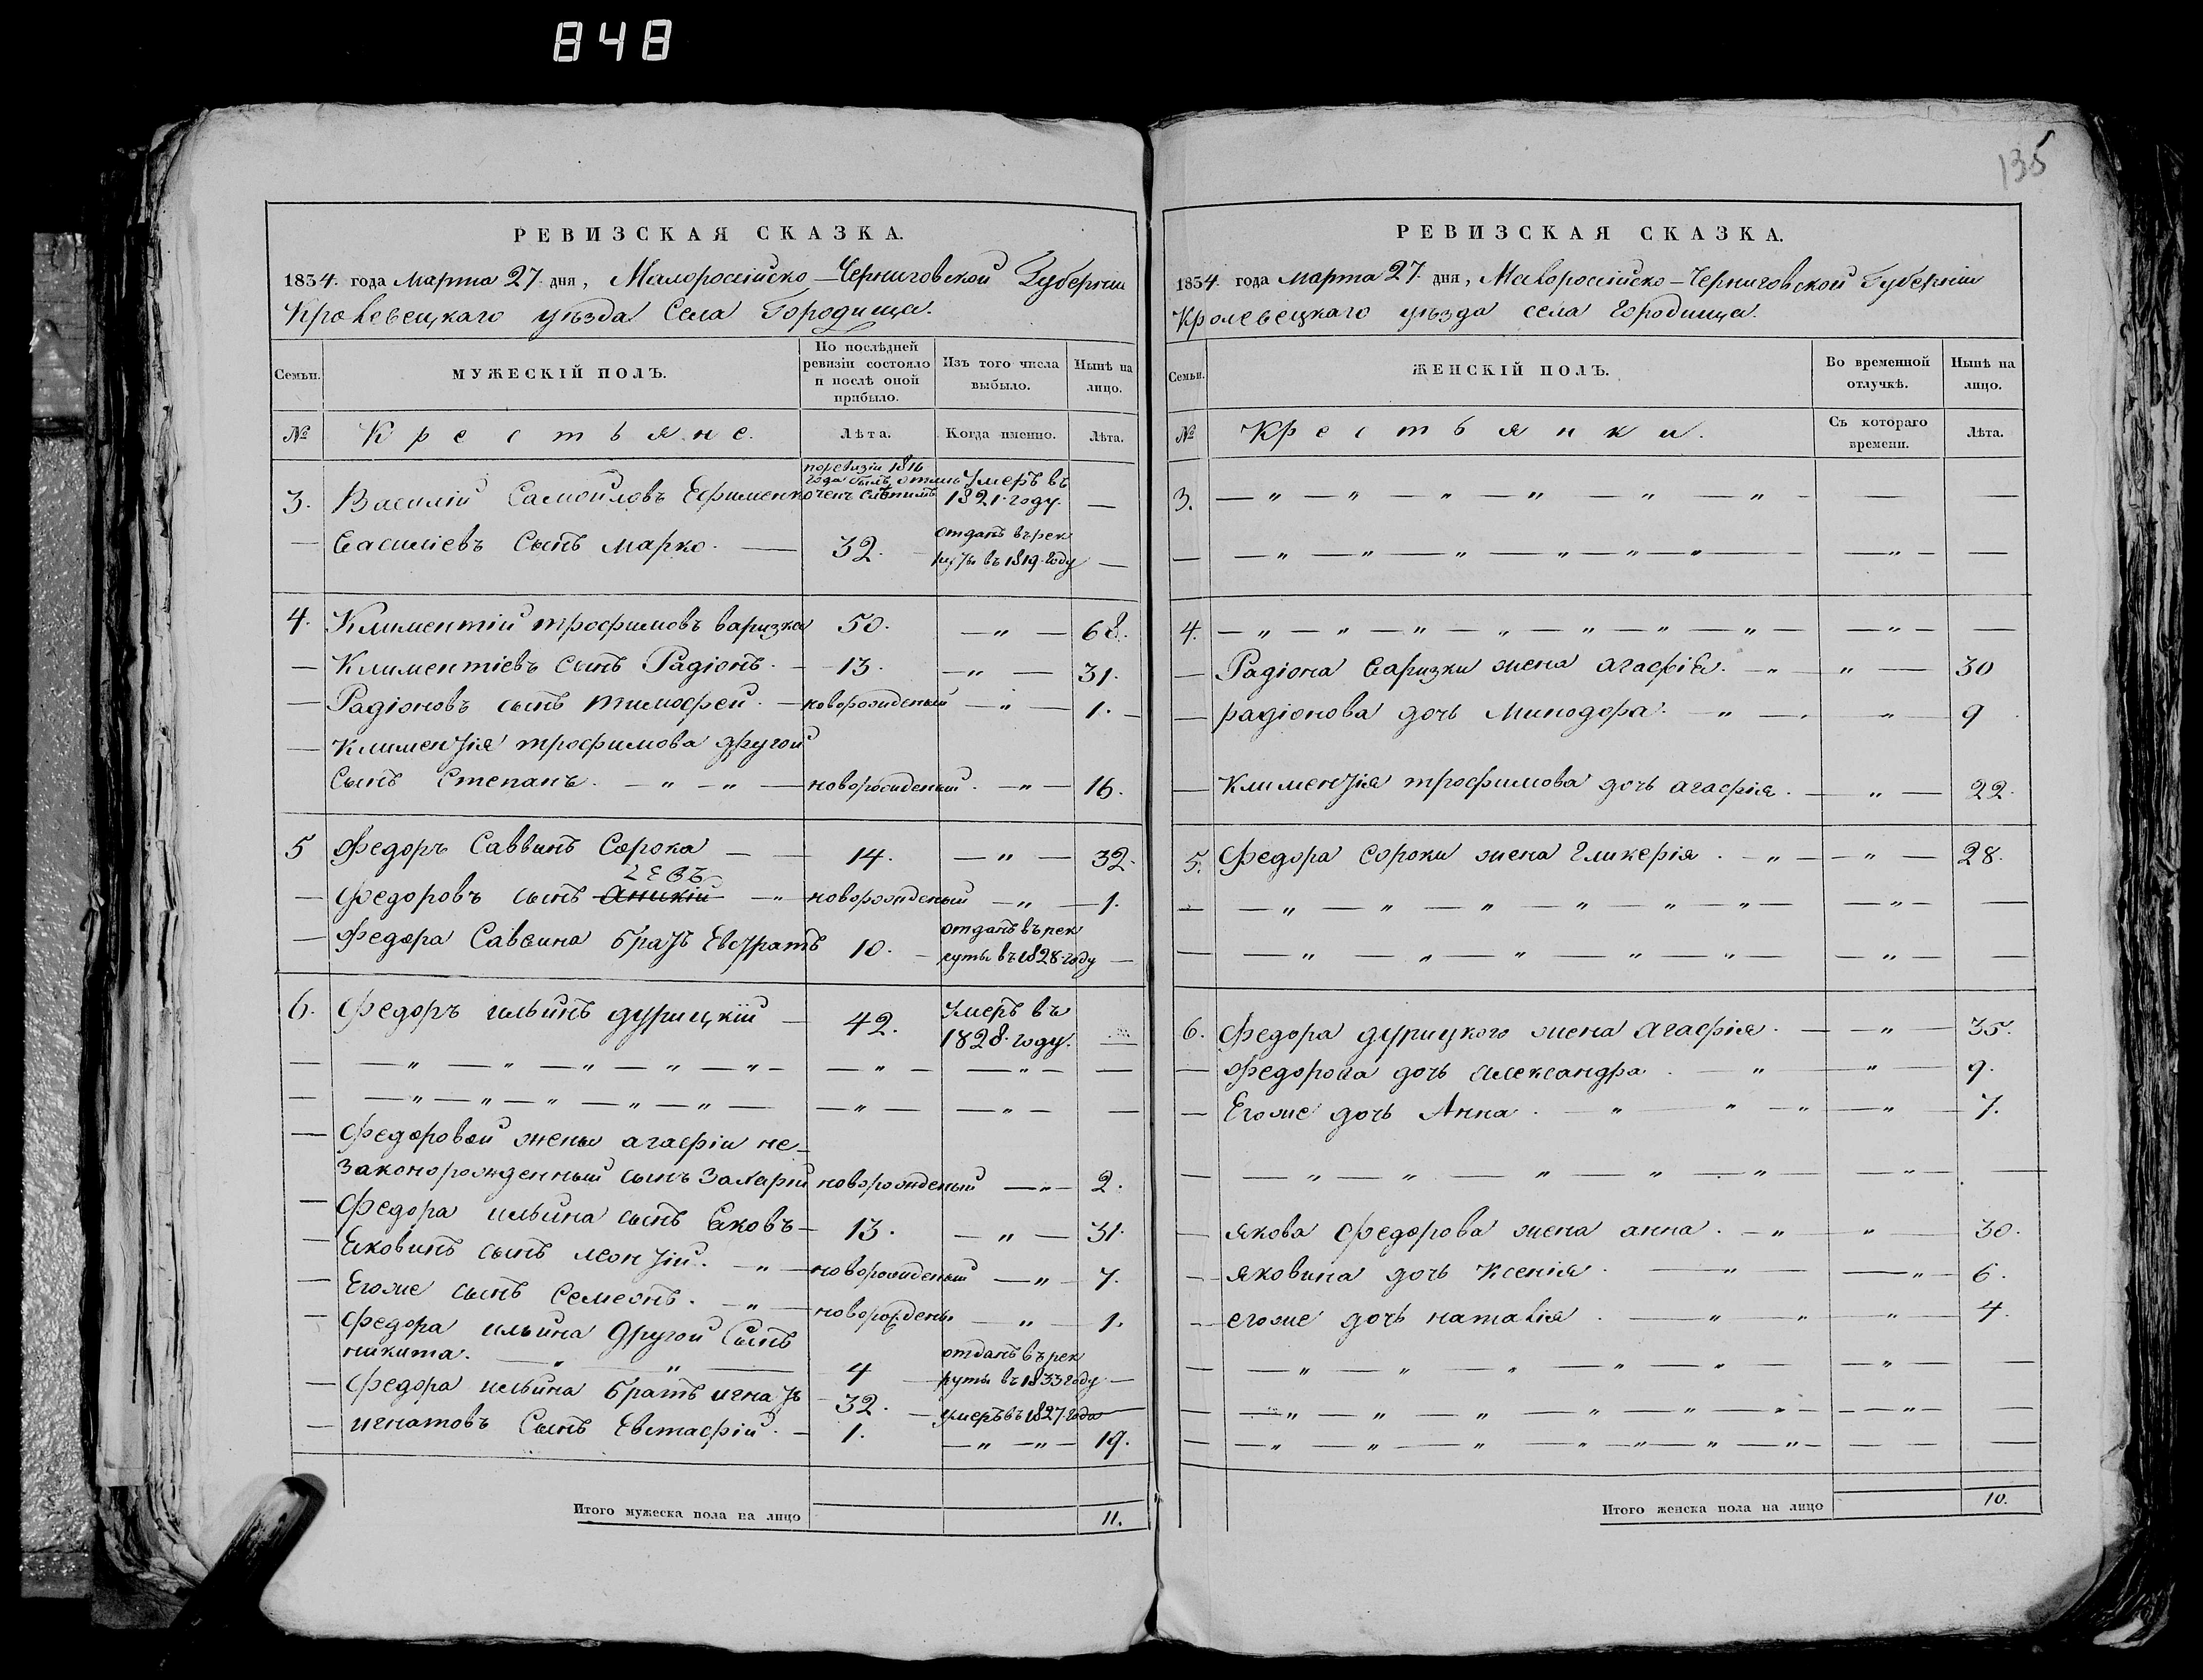 848
135
РЕВИЗСКАЯ СКАЗКА.
1834. года марта 27. дня, Малоросийско-Черниговской Губернии
Кролевецкаго уѣзда Села Городища.
Семьи.
МУЖЕСКІЙ ПОЛЪ.
По послѣдней ревизіи состояло и послѣ оной прибыло.
Изъ того числа выбыло.
Нынѣ на лицо.
№ Крестьяне. Лѣта. Когда именно. Лѣта.
3. Василій Самойловъ Ефименко Умеръ въ 1821. году. —
— Василіевъ Сынъ Марко. — 32. отданъ въ рекруты въ 1819. году —
4. Климентій трофимовъ варизка 50. — „ — 68.
— Климентіевъ сынъ Радіонъ. — 13. — „ — 31.
— Радіоновъ сынъ тимофей. — новорожденый — „ — 1. —
— Климентія трофимова другой
Сынъ Степанъ. — „ — „ — новорожденый. — „ — 16.
5 Федоръ Саввинъ Сорока — — 14. — „ — 32.
— федоровъ сынъ Аникій — „ — новорожденый — „ — 1.
— Федора Саввина братъ Евстратъ 10. — отданъ въ рекруты въ 1828. году —
6. Федоръ ильинъ дурицкій — 42. Умеръ въ 1828. году. —
— — „ — „ — „ — „ — „ — — „ — — „ — —
— — „ — „ — „ — „ — „ — — „ — — „ — —
— Федоровой жены агафіи не-
законорожденный сынъ Захарій новорожденый — „ — 2.
— Федора ильина сынъ Яковъ — 13. — „ — 31.
— Яковинъ сынъ леонтій. — „ — новорожденый — „ — 7.
— Егоже сынъ Семеонъ. — „ — новорожден. — „ — 1.
— Федора ильина другой Сынъ
никита. — „ — „ — 4 — отданъ въ рекруты въ 1833 году —
— Федора ильина братъ игнатъ 32. — умеръ въ 1827. года —
— игнатовъ Сынъ Евстафій. — 1. — „ — „ — 19.
Итого мужеска пола на лицо 11.
РЕВИЗСКАЯ СКАЗКА.
1834. года марта 27. дня, Малоросийско-Черниговской Губернии
Кролевецкаго уѣзда села Городища.
Семьи.
ЖЕНСКІЙ ПОЛЪ.
Во временной отлучкѣ.
Нынѣ на лицо.
№ Крестьянки. Съ котораго времени. Лѣта.
3. — „ — „ — „ — „ — „ — „ — — —
— — „ — „ — „ — „ — „ — „ — — „ — —
4. — „ — „ — „ — „ — „ — „ — „ — — „ — —
— Радіона варизки жена агафія. — „ — „ — 30
— радіонова дочь Минодора. — „ — „ — 9
— Климентія трофимова дочь агафія. — „ — 22.
5. Федора Сороки жена Гликерія. — „ — „ — 28.
— — „ — „ — „ — „ — „ — „ — — „ — —
— — „ — „ — „ — „ — „ — — „ — —
6. Федора дурицкого жена Агафія. — „ — 35.
— Федорова дочь Александра. — „ — „ — 9.
— Егоже дочь Анна. — „ — „ — „ — „ — 7.
— — „ — „ — „ — „ — „ — — „ — —
— якова федорова жена анна. — „ — „ — 30.
— яковина дочь Ксенія. — „ — „ — 6.
— егоже дочь наталія. — „ — „ — „ — 4.
— — „ — „ — „ — „ — „ — — „ — —
— — „ — „ — „ — „ — „ — „ — — „ — —
— — „ — „ — „ — „ — „ — „ — „ — — — —
Итого женска пола на лицо 10.